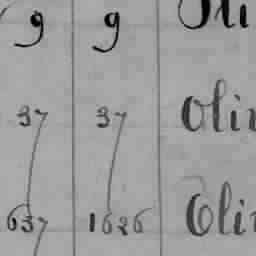 9 9
37 37 Oli
637 1626 Oli